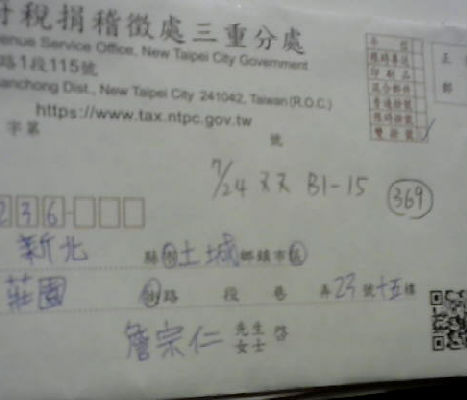 府稅捐稽徵處三重分處
enue Service Office, New Taipei City Government
路1段115號
anchong Dist., New Taipei City 241042, Taiwan (R.O.C.)
https://www.tax.ntpc.gov.tw
字第 號
限時專送
印刷品
雙掛號
正
郵
7/24 双双 B1-15 369
236
新北 縣市土城鄉鎮市區
莊園街路 段 巷 弄23號十五樓
詹宗仁 先生女士 啓